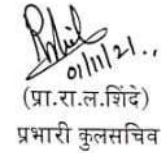 01/11/21..
(प्रा.रा.ल.शिंदे)
प्रभारी कुलसचिव